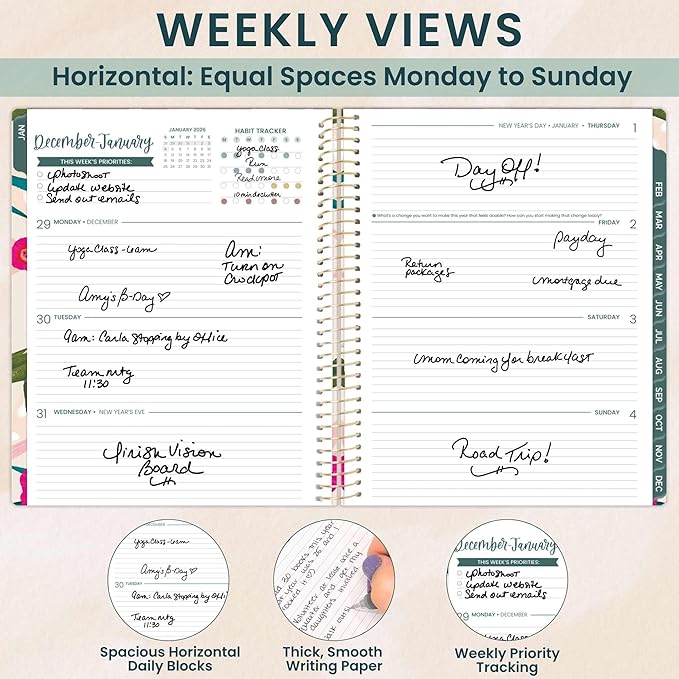 WEEKLY VIEWS
Horizontal: Equal Spaces Monday to Sunday
JAN
December-January
THIS WEEK'S PRIORITIES:
photoshoot
update website
Send out emails
JANUARY 2026
S M T W T F S
HABIT TRACKER
M T W T F S S
Yoga Class
Run
Read more
10 min declutter
29 MONDAY • DECEMBER
Yoga Class - 6am
Am:
Turn on
Crockpot
Amy's B-Day ♡
30 TUESDAY
9am: Carla Stopping by Office
Team mtg
11:30
31 WEDNESDAY • NEW YEAR'S EVE
finish Vision
Board
NEW YEAR'S DAY • JANUARY • THURSDAY 1
Day Off!
What's a change you want to make this year that feels doable? How can you start making that change today?
FRIDAY 2
payday
Return
packages
mortgage due
SATURDAY 3
mom coming for breakfast
SUNDAY 4
Road Trip!
FEB
MAR
APR
MAY
JUN
JUL
AUG
SEP
OCT
NOV
DEC
DECEMBER
Yoga Class - 6am
Amy's B-Day ♡
30 TUESDAY
9am: Carla Stopping by Offi
Team mtg
11:30
30 books this year
year was 25 and I
Volunteer at least once a
quarter and get my
daughters involved
December-January
THIS WEEK'S PRIORITIES:
photoshoot
update website
Send out emails
29 MONDAY • DECEMBER
Yoga Class
Spacious Horizontal
Daily Blocks
Thick, Smooth
Writing Paper
Weekly Priority
Tracking